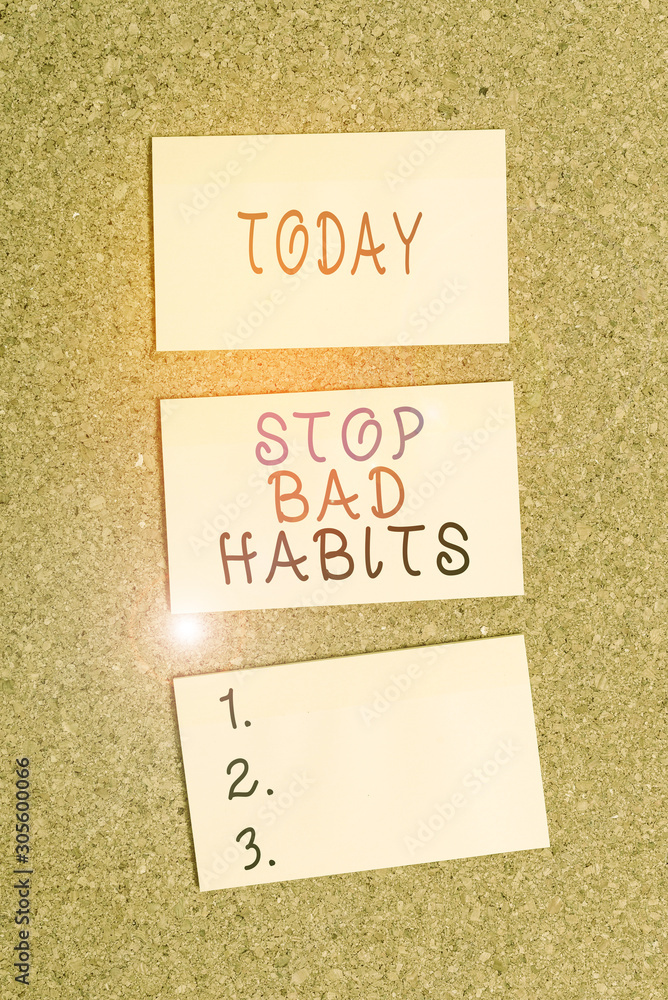 TODAY
STOP
BAD
HABITS
1.
2.
3.
Adobe Stock | #305600066